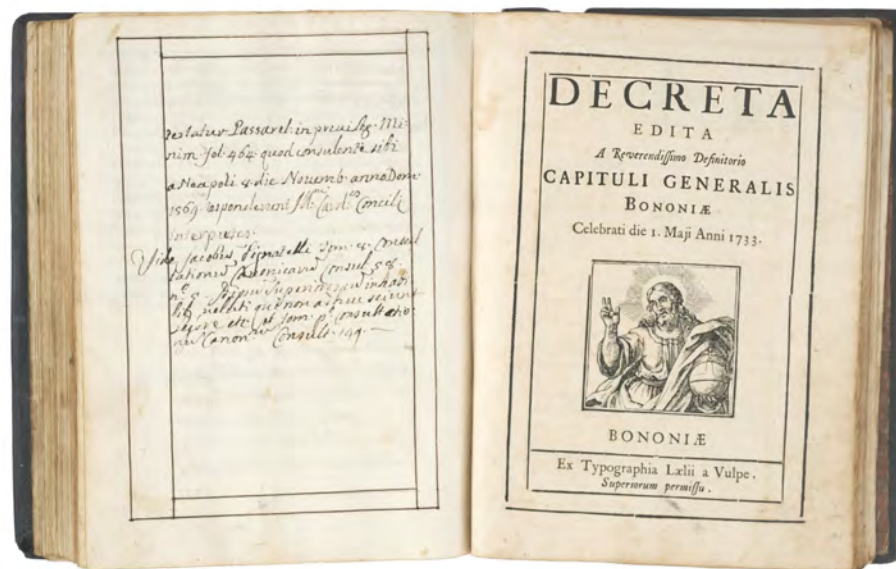 testatur Passarel: in privileg. Mi-
nim. fol. 464. quod consulente sibi
a Neapoli 8. die Novemb. anno Dom.
1569. responderunt Ill.mi Card.es Concilii
interpretes.
Vide Jacobum Pignatelli Tom. 8. Consul
tationum Canonicarum Consul. 58.
n.o 5.
velati qui non
etc. et Tom. p.o Consultatio
num Canon. Consult. 149.
DECRETA
EDITA
A Reverendissimo Definitorio
CAPITULI GENERALIS
BONONIÆ
Celebrati die 1. Maji Anni 1733.
BONONIÆ
Ex Typographia Lælii a Vulpe.
Superiorum permissu.